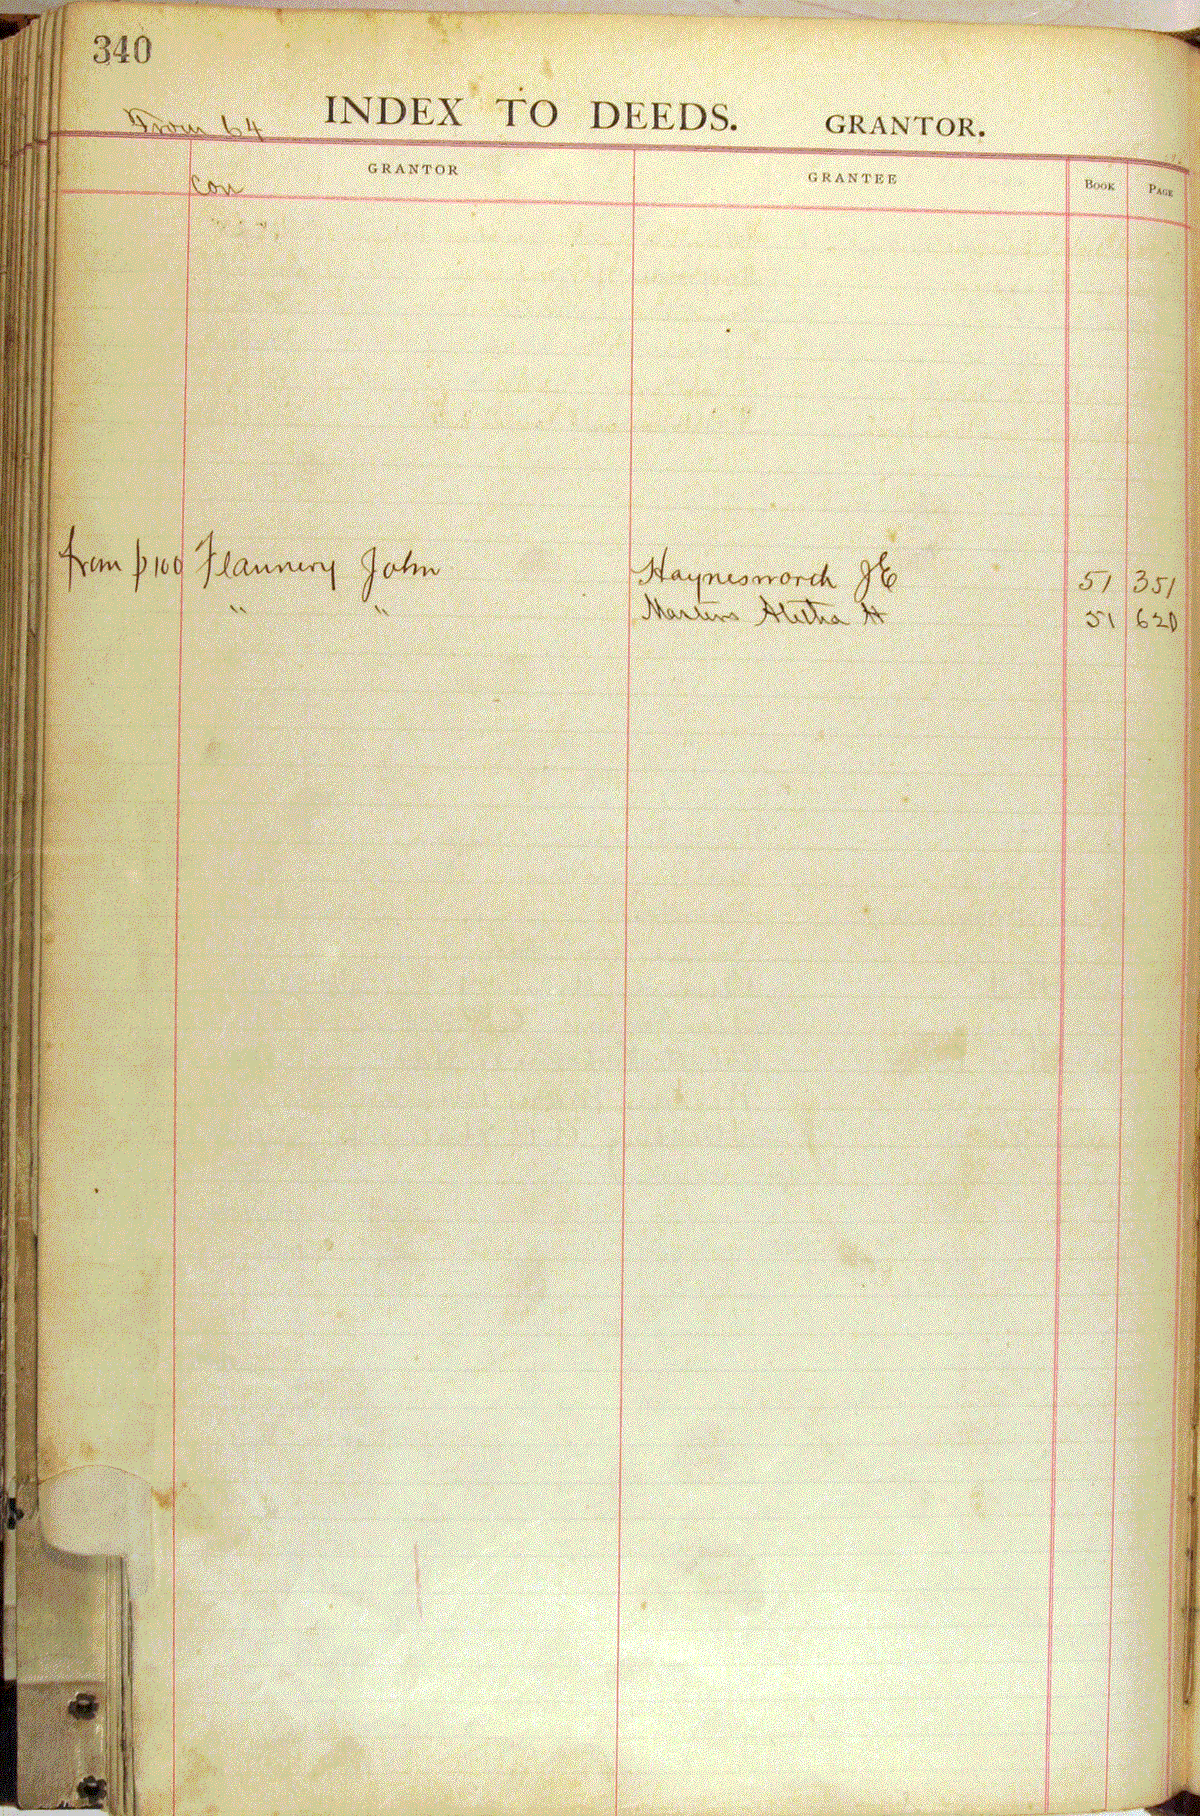 340
INDEX TO DEEDS. GRANTOR.
From 64
GRANTOR GRANTEE BOOK PAGE
Con
from p100 Flannery John Haynesworth J E 51 351
" " Martins Aletha H 51 620